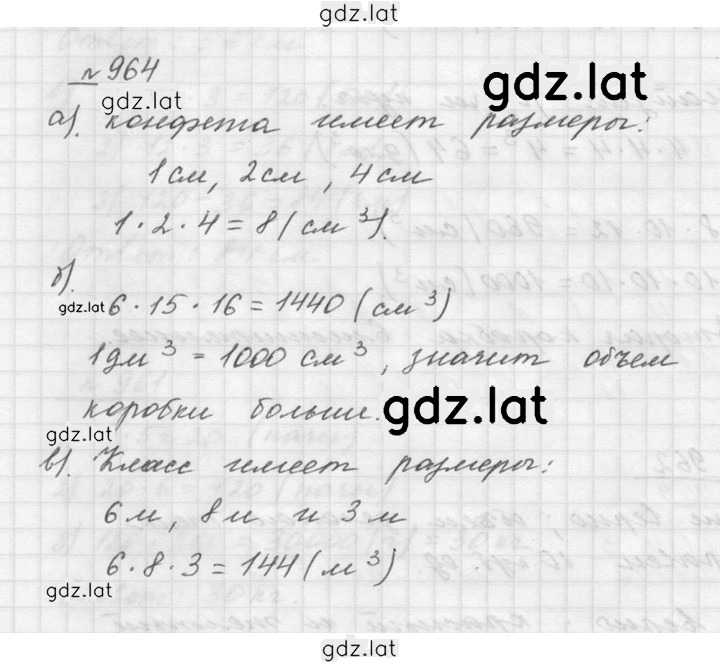 gdz.lat
№ 964
gdz.lat
gdz.lat
а). конфета имеет размеры:
1см, 2см, 4см
1·2·4=8(см³).
б).
gdz.lat
6·15·16=1440(см³)
1дм³=1000см³, значит объем
коробки больше.
gdz.lat
gdz.lat
в). Класс имеет размеры:
6м, 8м и 3м
6·8·3=144(м³)
gdz.lat
gdz.lat